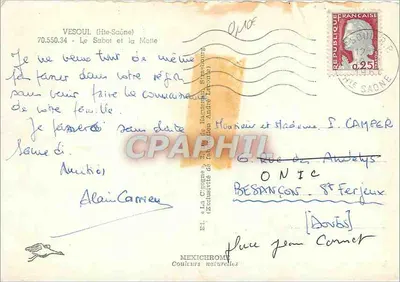 VESOUL (Hte-Saône)
70.550.34 - Le Sabot et la Motte
0,10€
REPUBLIQUE FRANÇAISE
0,25
VESOUL R.P.
HTE SAONE
Je ne veux tout de même
pas passer dans votre région
sans venir faire la connaissance
de votre famille.
Je passerai sans doute
Samedi
Amitiés
Alain Carrieu
CPARHTIF
Monsieur et Madame J. CAMPER
6 Rue des
ONIC
BESANÇON - St Ferjeux
(DOUBS)
place Jean Cornet
Ed. "La Cigogne"
MEXICHROME
Couleurs naturelles